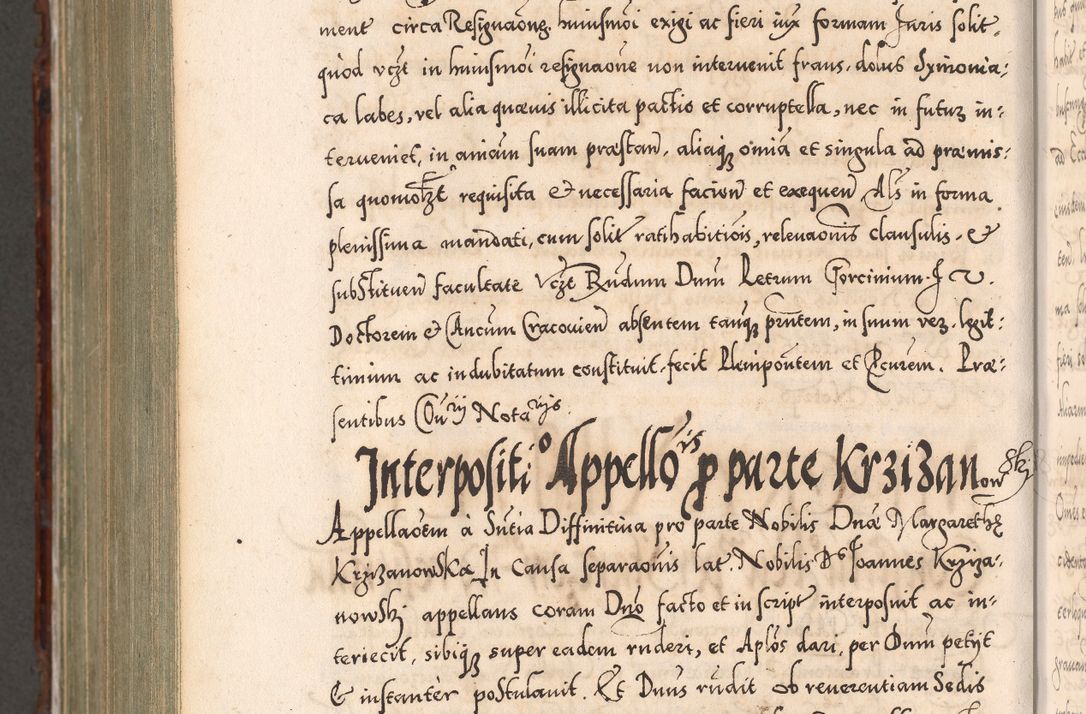 ment circa Resignaōnē huiusmōi exigi ac fieri iux formam Juris solit,
quòd vcʒt in huiusmōi resignaōne non intervenit fraus, dolus Sximonia:
ca labes, vel alia quævis illicita pactio et corruptella, nec in futurʒ in:
terveniet, in aniam̄ suam præstan̄, aliaqʒ om̄ia et singula ad præmis:
sa quomoltʒt requisita & necessaria facien̄ et exequen̄ Als in forma
plenissima mandati, cum solit ratihabitiōis, relevaōnis clausulis, &
substituen̄ facultate Vcʒt Rn̄dum Dnum̄ Petrum Gorcinium J V.
Doctorem & Can̄cum Cracovien̄ absentem tanqʒ pr̄ntem, in suum verʒ, legit:
timum ac indubitatum constituit, fecit Plenipōntem et Pcurem. Præ:
sentibus Con̄rij Notarijs.
Interpositio Appellōis ꝑ parte Krzizanowskj
Appellaōem à Sn̄tia Diffinitiva pro parte Nobilis Dnæ Margarethæ
Krzizanowska In Causa separaōnis lat. Nobilis Ds Joannes Krziza:
nowskj appellans coram Dn̄o facto et in script interposuit ac in:
teriecit, sibiqʒ super eadem rn̄deri, et Aplōs dari, per Dnūm petijt
& instantèr postulavit. Et Dnus rn̄dit ob reverentiam Sedis